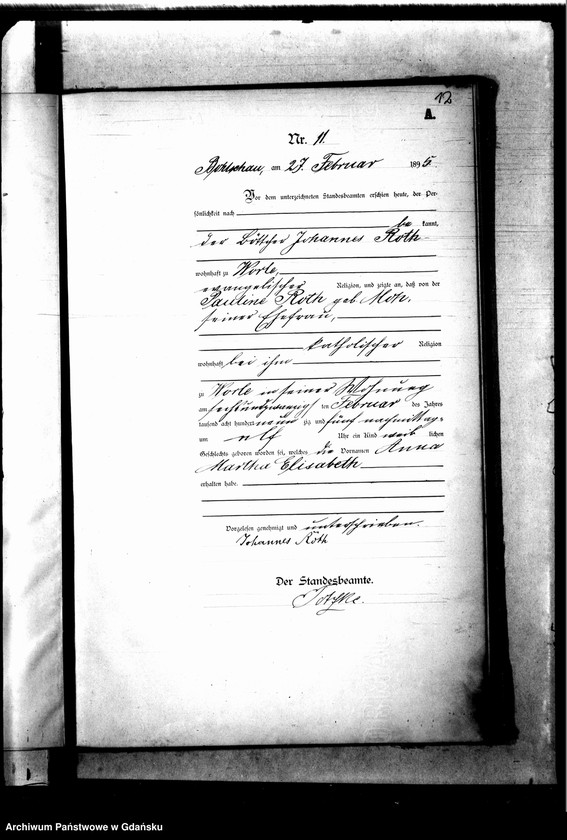 12
A.
Nr. 11.
Bohlschau, am 27. Februar 1895.
Vor dem unterzeichneten Standesbeamten erschien heute, der Per-
sönlichkeit nach
be kannt,
der Böttcher Johannes Roth
wohnhaft zu Worle,
evangelischer Religion, und zeigte an, daß von der
Pauline Roth geb. Moh.
seiner Ehefrau,
katholischer Religion
wohnhaft bei ihm
zu Worle in seiner Wohnung
am sechsundzwanzigsten Februar des Jahres
tausend acht hundert neun zig und fünf nachmittags
um elf Uhr ein Kind weib lichen
Geschlechts geboren worden sei, welches die Vornamen Anna
Martha Elisabeth
erhalten habe.
Vorgelesen genehmigt und unterschrieben.
Johannes Roth
Der Standesbeamte.
Archiwum Państwowe w Gdańsku